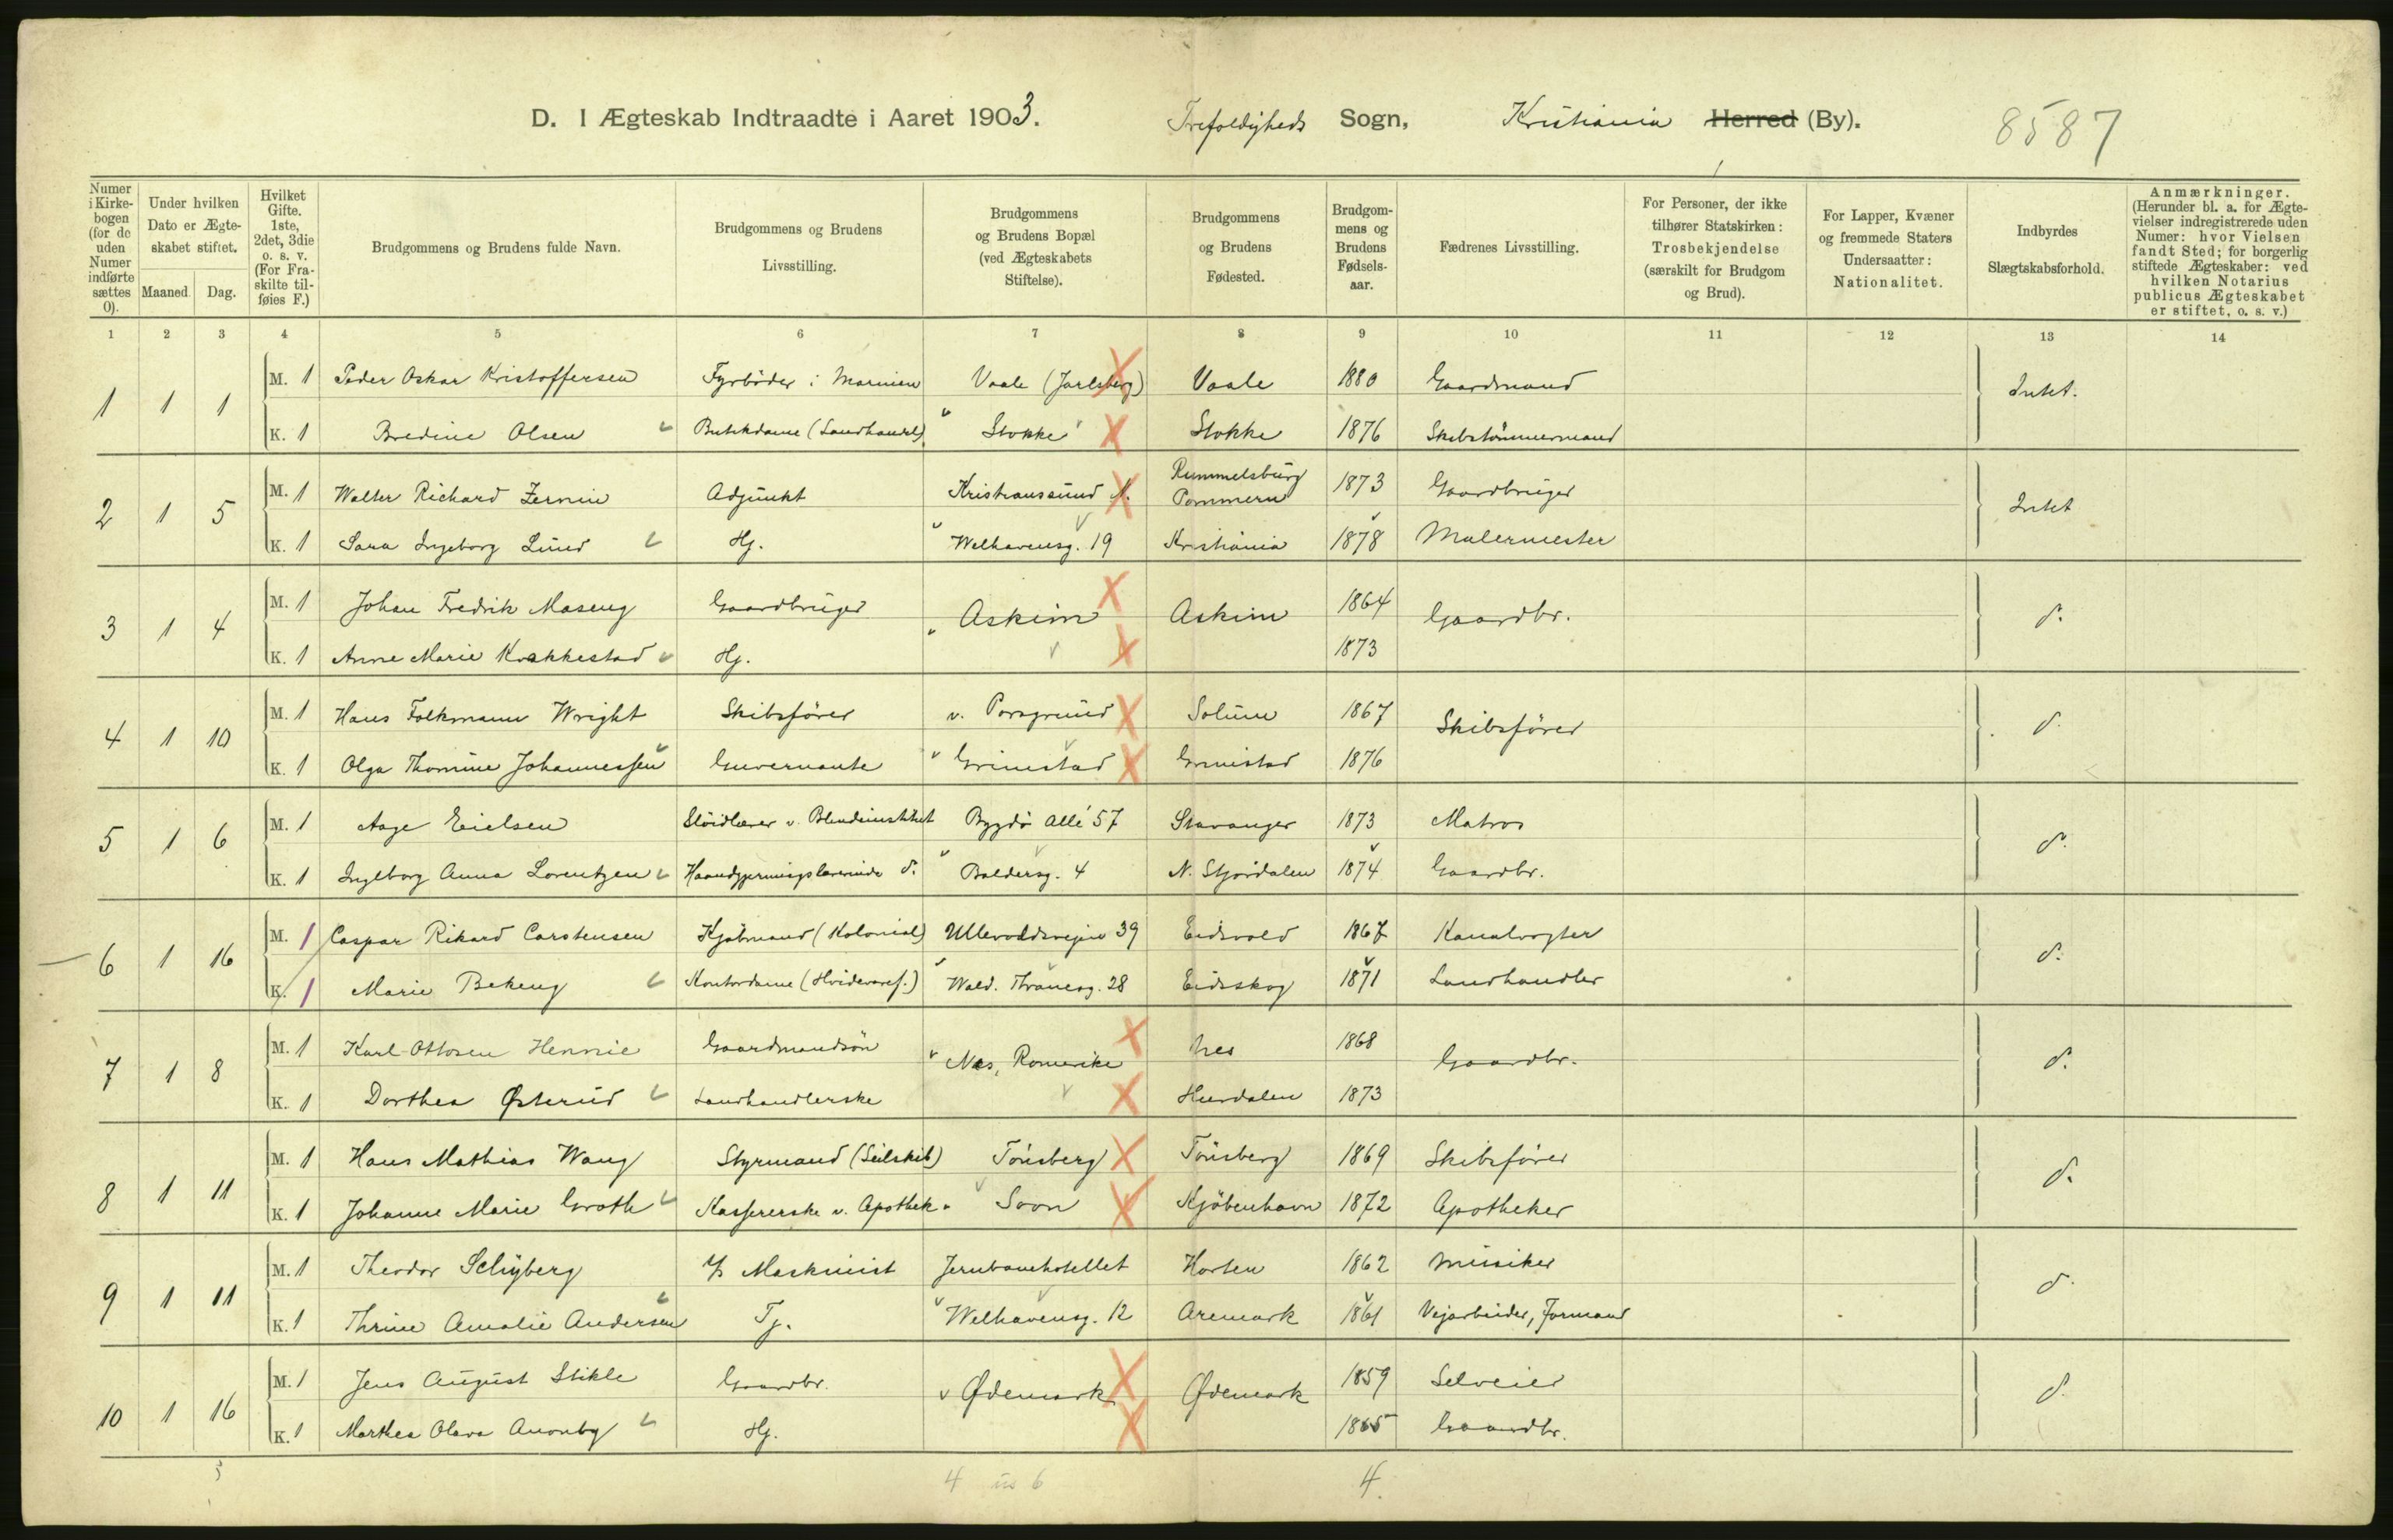 D. I Ægteskab Indtraadte i Aaret 1903. Trefoldigheds Sogn, Kristiania Herred (By). 8587
Numer i Kirkebogen (for de uden Numer indførte sættes 0).
Under hvilken Dato er Ægteskabet stiftet.
Maaned. Dag.
Hvilket Gifte. 1ste, 2det, 3die o. s. v. (For Fraskilte tilføies F.)
Brudgommens og Brudens fulde Navn.
Brudgommens og Brudens Livsstilling.
Brudgommens og Brudens Bopæl (ved Ægteskabets Stiftelse).
Brudgommens og Brudens Fødested.
Brudgommens og Brudens Fødselsaar.
Fædrenes Livsstilling.
For Personer, der ikke tilhører Statskirken: Trosbekjendelse (særskilt for Brudgom og Brud).
For Lapper, Kvæner og fremmede Staters Undersaatter: Nationalitet.
Indbyrdes Slægtskabsforhold.
Anmærkninger. (Herunder bl. a. for Ægtevielser indregistrerede uden Numer: hvor Vielsen fandt Sted; for borgerlig stiftede Ægteskaber: ved hvilken Notarius publicus Ægteskabet er stiftet, o. s. v.)
1 2 3 4 5 6 7 8 9 10 11 12 13 14
1 1 1 M. 1 Peder Oskar Kristoffersen Fyrbøder i Marinen Vaale (Jarlsberg) Vaale 1880 Gaardmand Intet.
K. 1 Bredine Olsen Butikdame (Landhandel) Stokke Stokke 1876 Skibstömmermand
2 1 5 M. 1 Walter Richard Zernin Adjunkt Kristianssund N. Rummelsburg Pommern 1873 Gaardbruger Intet
K. 1 Sara Ingeborg Lund Hj. Welhavensg. 19 Kristiania 1878 Malermester
3 1 4 M. 1 Johan Fredrik Maseng Gaardbruger Askim Askim 1864 Gaardbr. d.
K. 1 Anne Marie Krakkestad Hj. 1873
4 1 10 M. 1 Hans Folkmann Wright Skibsfører v. Porsgrund Solum 1867 Skibsfører d.
K. 1 Olga Thomine Johannessen Guvernante Grimstad Grimstad 1876
5 1 6 M. 1 Aage Eielsen Slöidlærer v. Blindeinstitut Bygdö Allé 57 Stavanger 1873 Matros d.
K. 1 Ingeborg Anna Lorentzen Haandgjerningslærerinde d. Baldersg. 4 N. Stjördalen 1874 Gaardbr.
6 1 16 M. 1 Caspar Rikard Carstensen Kjöbmand (Kolonial) Ullevoldsveien 39 Eidsvold 1867 Kanalvogter d.
K. 1 Marie Bekeng Kontordame (Hvidevaref.) Wald. Thranesg. 28 Eidsskog 1871 Landhandler
7 1 8 M. 1 Karl Ottosen Hennie Gaardmandsön Nes, Romerike Nes 1868 Gaardbr. d.
K. 1 Dorthea Østerud Landhandlerske Hurdalen 1873
8 1 11 M. 1 Hans Mathias Wang Styrmand (Seilskib) Tönsberg Tönsberg 1869 Skibsfører d.
K. 1 Johanne Marie Groth Kassererske v. Apothek. Soon Kjöbenhavn 1872 Apotheker
9 1 11 M. 1 Theodor Schyberg Maskinist Jernbanehotellet Horten 1862 Musiker d.
K. 1 Thrine Amalie Andersen Tj. Welhavensg. 12 Aremark 1861 Vejarbeider, Formand
10 1 16 M. 1 Jens August Stikle Gaardbr. Ødemark Ødemark 1859 Selveier d.
K. 1 Marthea Olava Anonby Hj. 1865 Gaardbr.
4 6 4.